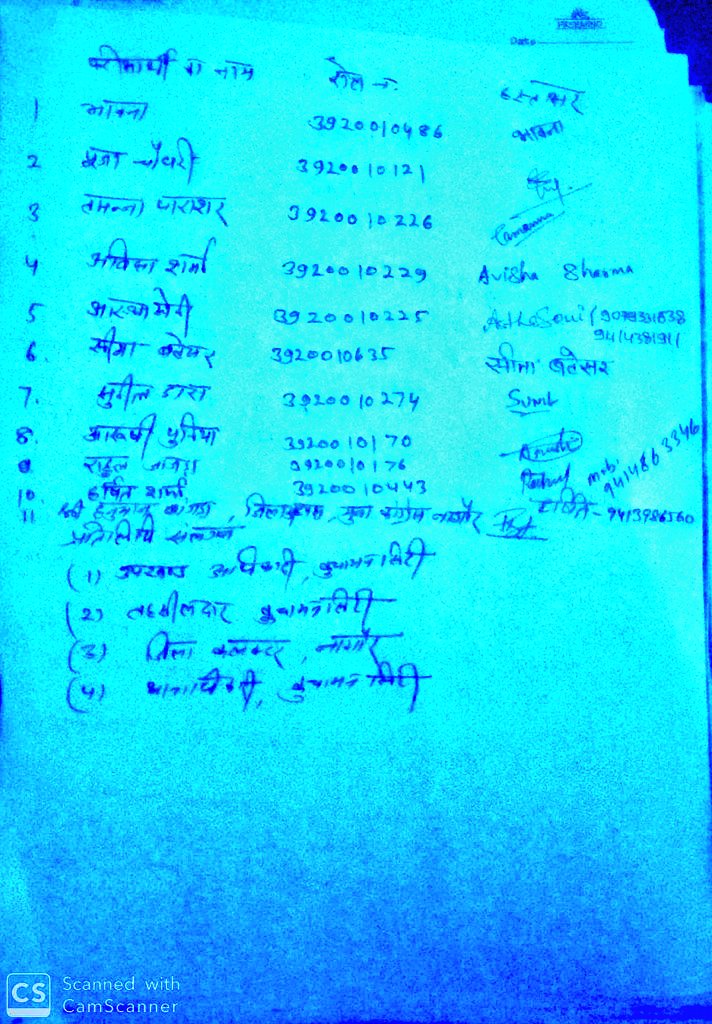 Date
परीक्षार्थी का नाम रोल न. हस्ताक्षर
1 भावना 3920010486 भावना
2 पूजा चौधरी 3920010121
3 तमन्ना पाराशर 3920010226 Tamanna
4 अविशा शर्मा 3920010229 Avisha Sharma
5 आस्था सोनी 3920010225 Astha Soni /
9414381911
6. सीमा बटेसर 3920010635 सीमा बटेसर
7. सुनील डारा 3920010274
8. आरूषी पुनिया 3920010170
9 राहुल 3920010176 Rahul mob. 9414863346
10. हर्षित शर्मा 3920010443 हर्षित - 9413986560
11 श्री हनुमान बांगड़ा, जिलाध्यक्ष, युवा कांग्रेस नागौर
प्रतिलिपि संलग्न
(1) उपखण्ड अधिकारी, कुचामन सिटी
(2) तहसीलदार कुचामन सिटी
(3) जिला कलक्टर, नागौर
(4) थानाधिकारी, कुचामन सिटी
CS Scanned with
CamScanner